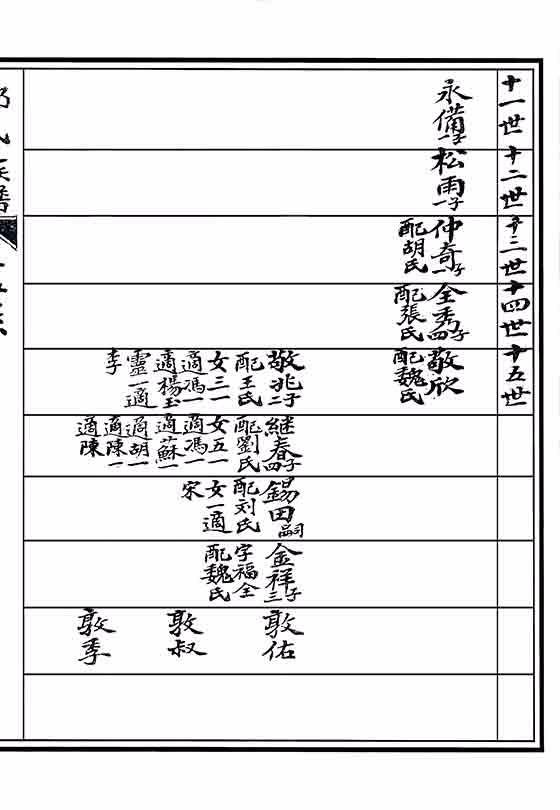 十一世
十二世
十三世
十四世
十五世
永備一子
松雨一子
仲奇一子
配胡氏
全秀四子
配張氏
敬欣
配魏氏
敬兆二子
配王氏
女三一
適馮一
適楊玉
靈一適
李
継春四子
配劉氏
女五一
適馮一
適蘇一
適胡一
適陳一
適陳
錫田嗣
配刘氏
女一適
宋
金祥三子
字福全
配魏氏
敦佑
敦叔
敦季
氏族譜